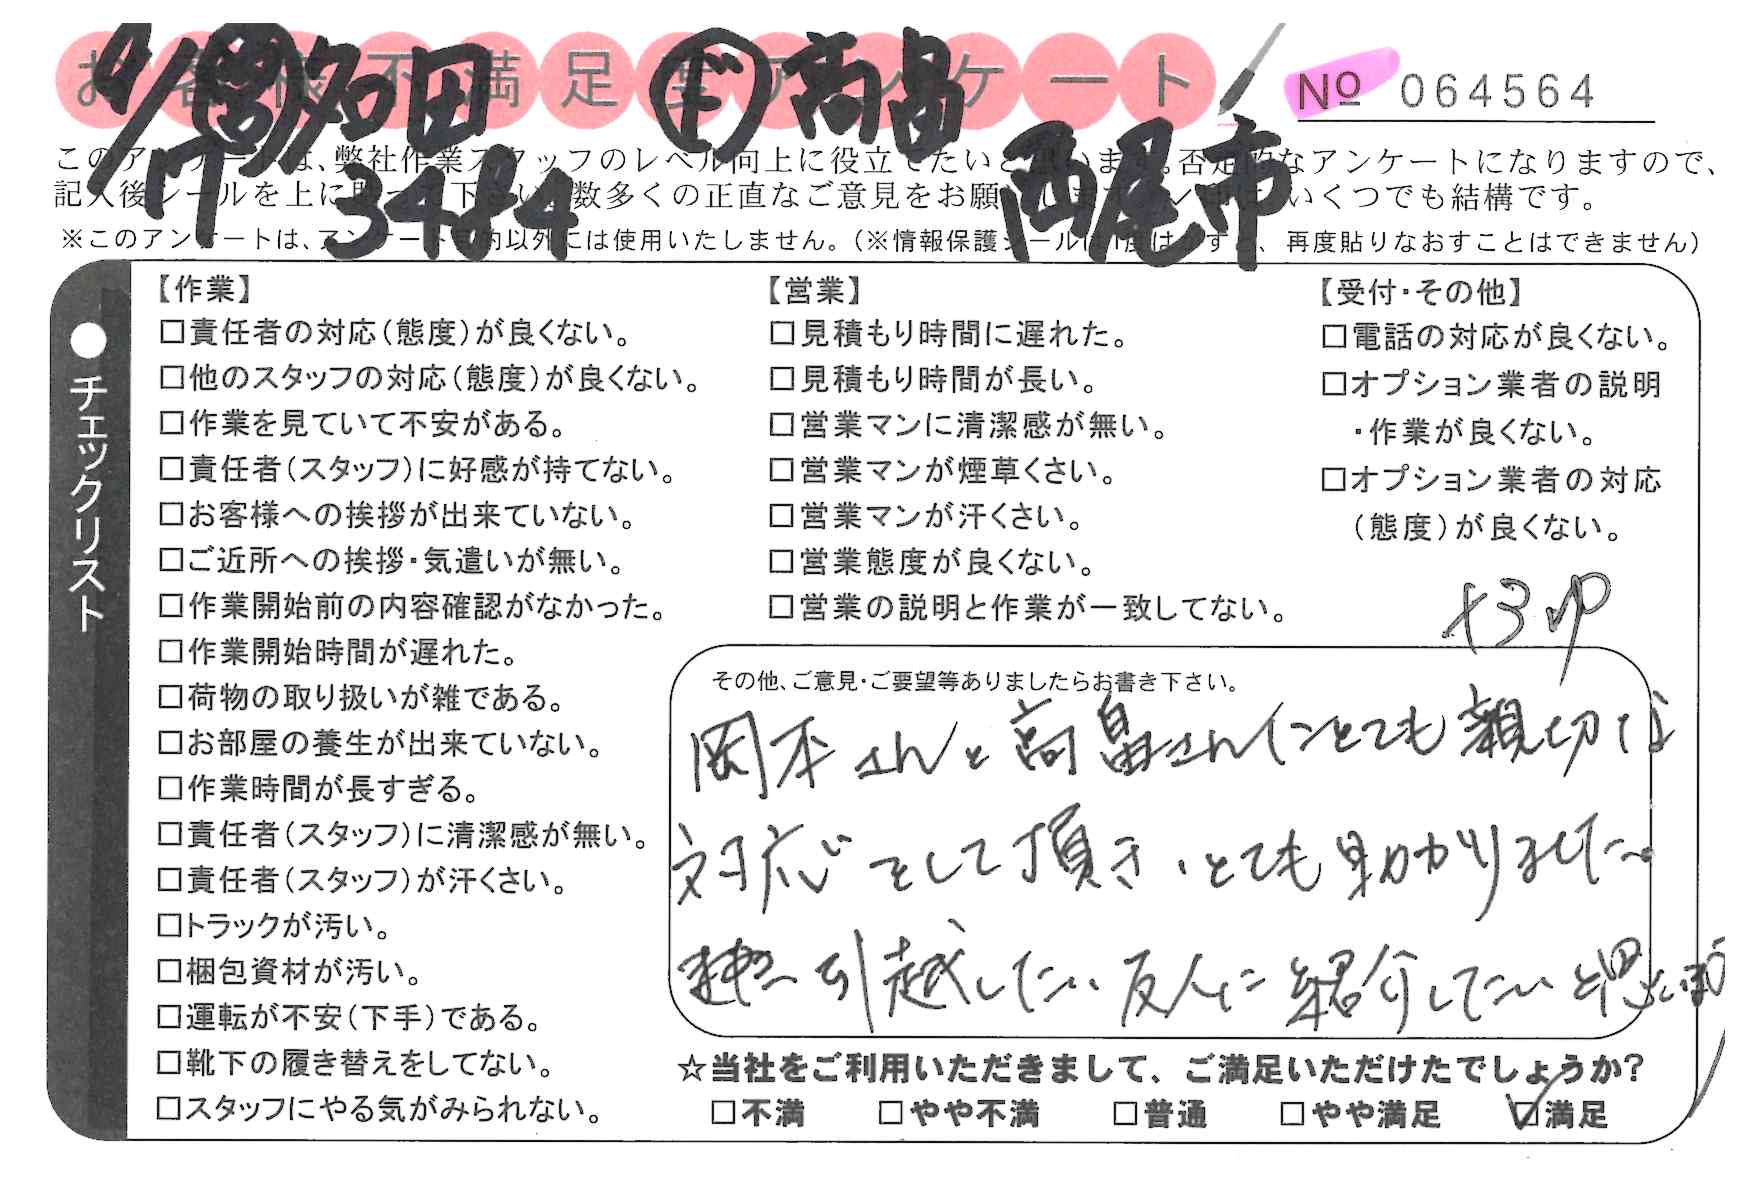 お客様不満足度アンケート
No 064564
4/17 営 多田 上 高畠
3484 西尾市
このアンケートは、弊社作業スタッフのレベル向上に役立てたいと思います。否定的なアンケートになりますので、
記入後シールを上に貼って下さい。数多くの正直なご意見をお願いします。いくつでも結構です。
※このアンケートは、アンケート目的以外には使用いたしません。（※情報保護シールは1度はがすと、再度貼りなおすことはできません）
●チェックリスト
【作業】
□責任者の対応（態度）が良くない。
□他のスタッフの対応（態度）が良くない。
□作業を見ていて不安がある。
□責任者（スタッフ）に好感が持てない。
□お客様への挨拶が出来ていない。
□ご近所への挨拶・気遣いが無い。
□作業開始前の内容確認がなかった。
□作業開始時間が遅れた。
□荷物の取り扱いが雑である。
□お部屋の養生が出来ていない。
□作業時間が長すぎる。
□責任者（スタッフ）に清潔感が無い。
□責任者（スタッフ）が汗くさい。
□トラックが汚い。
□梱包資材が汚い。
□運転が不安（下手）である。
□靴下の履き替えをしてない。
□スタッフにやる気がみられない。
【営業】
□見積もり時間に遅れた。
□見積もり時間が長い。
□営業マンに清潔感が無い。
□営業マンが煙草くさい。
□営業マンが汗くさい。
□営業態度が良くない。
□営業の説明と作業が一致してない。
【受付・その他】
□電話の対応が良くない。
□オプション業者の説明
・作業が良くない。
□オプション業者の対応
（態度）が良くない。
+3
その他、ご意見・ご要望等ありましたらお書き下さい。
岡本さんと高畠さんにとても親切な
対応をして頂き、とても助かりました。
引越したい友人に紹介したいと思います
☆当社をご利用いただきまして、ご満足いただけたでしょうか?
□不満 □やや不満 □普通 □やや満足 ☑満足